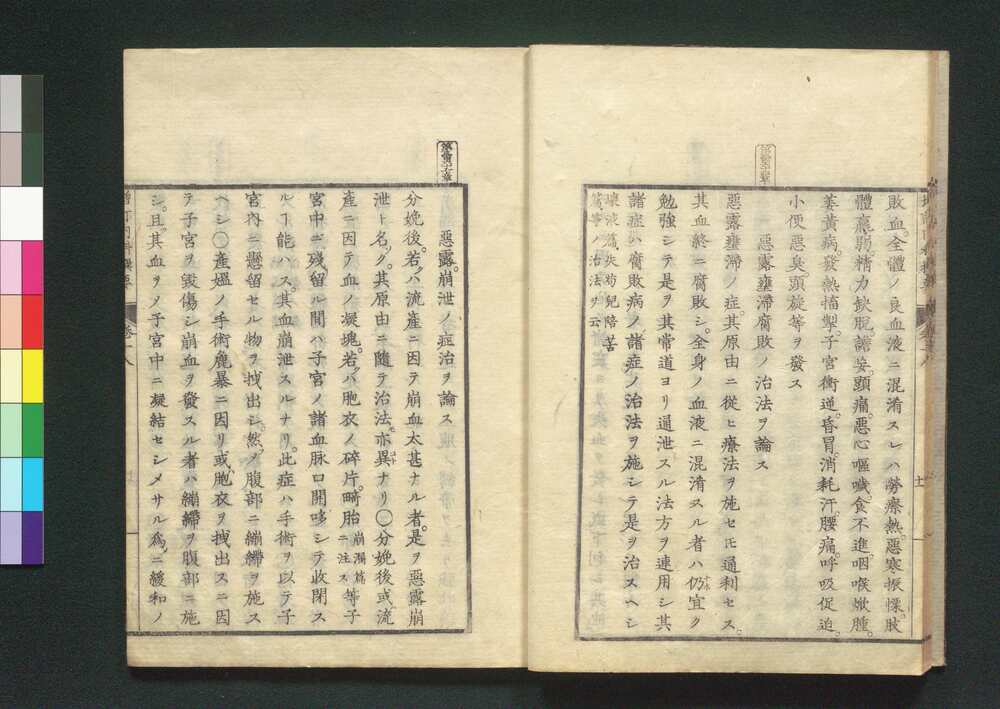 敗血。全體ノ良血液ニ混淆スレハ勞瘵熱。惡寒振慄。肢
體羸弱。精力缺脱。譫妄。頭痛。惡心嘔嘁。食不進。咽喉焮腫。
萎黃病。發熱搐掣。子宮衝逆。昏冒。消耗汗。腰痛。呼吸促迫。
小便惡臭。頭旋等ヲ發ス
惡露壅滯腐敗ノ治法ヲ論ス
惡露壅滯ノ症。其原由ニ從ヒ療法ヲ施セ𪜈通利セス。
其血終ニ腐敗シ。全身ノ血液ニ混淆スル者ハ仍宜ク
勉強シテ是ヲ其常道ヨリ通泄スル法方ヲ連用シ其
諸症ハ腐敗病ノ諸症ノ治法ヲ施シテ是ヲ治スヘシ
壞液篇。失苟兒陪苦
篇等ノ治法ヲ云
十
惡露。崩泄ノ症治ヲ論ス
分娩後。若クハ流產ニ因テ崩血太甚ナル者。是ヲ惡露崩
泄ト名ク。其原由ニ隨テ治法。亦異ナリ〇分娩後或流
產ニ因テ血ノ凝塊。若クハ胞衣ノ碎片。畸胎崩漏篇ニ注ス等子
宮中ニ殘留ル間ハ子宮ノ諸血脉口開哆シテ收閉ス
ルヿ能ハス。其血崩泄スルナリ。此症ハ手術ヲ以テ子
宮內ニ懸留セル物ヲ拽出シ。然ノ腹部ニ繃𦄂ヲ施ス
ヘシ〇產媼ノ手術麁暴ニ因リ或胞衣ヲ拽出スニ因
テ子宮ヲ毀傷シ崩血ヲ發スル者ハ繃𦄂ヲ腹部ニ施
シ。且其血ヲノ子宮中ニ凝結セシメサル爲ニ緩和ノ
增訂內科撰要 卷十八